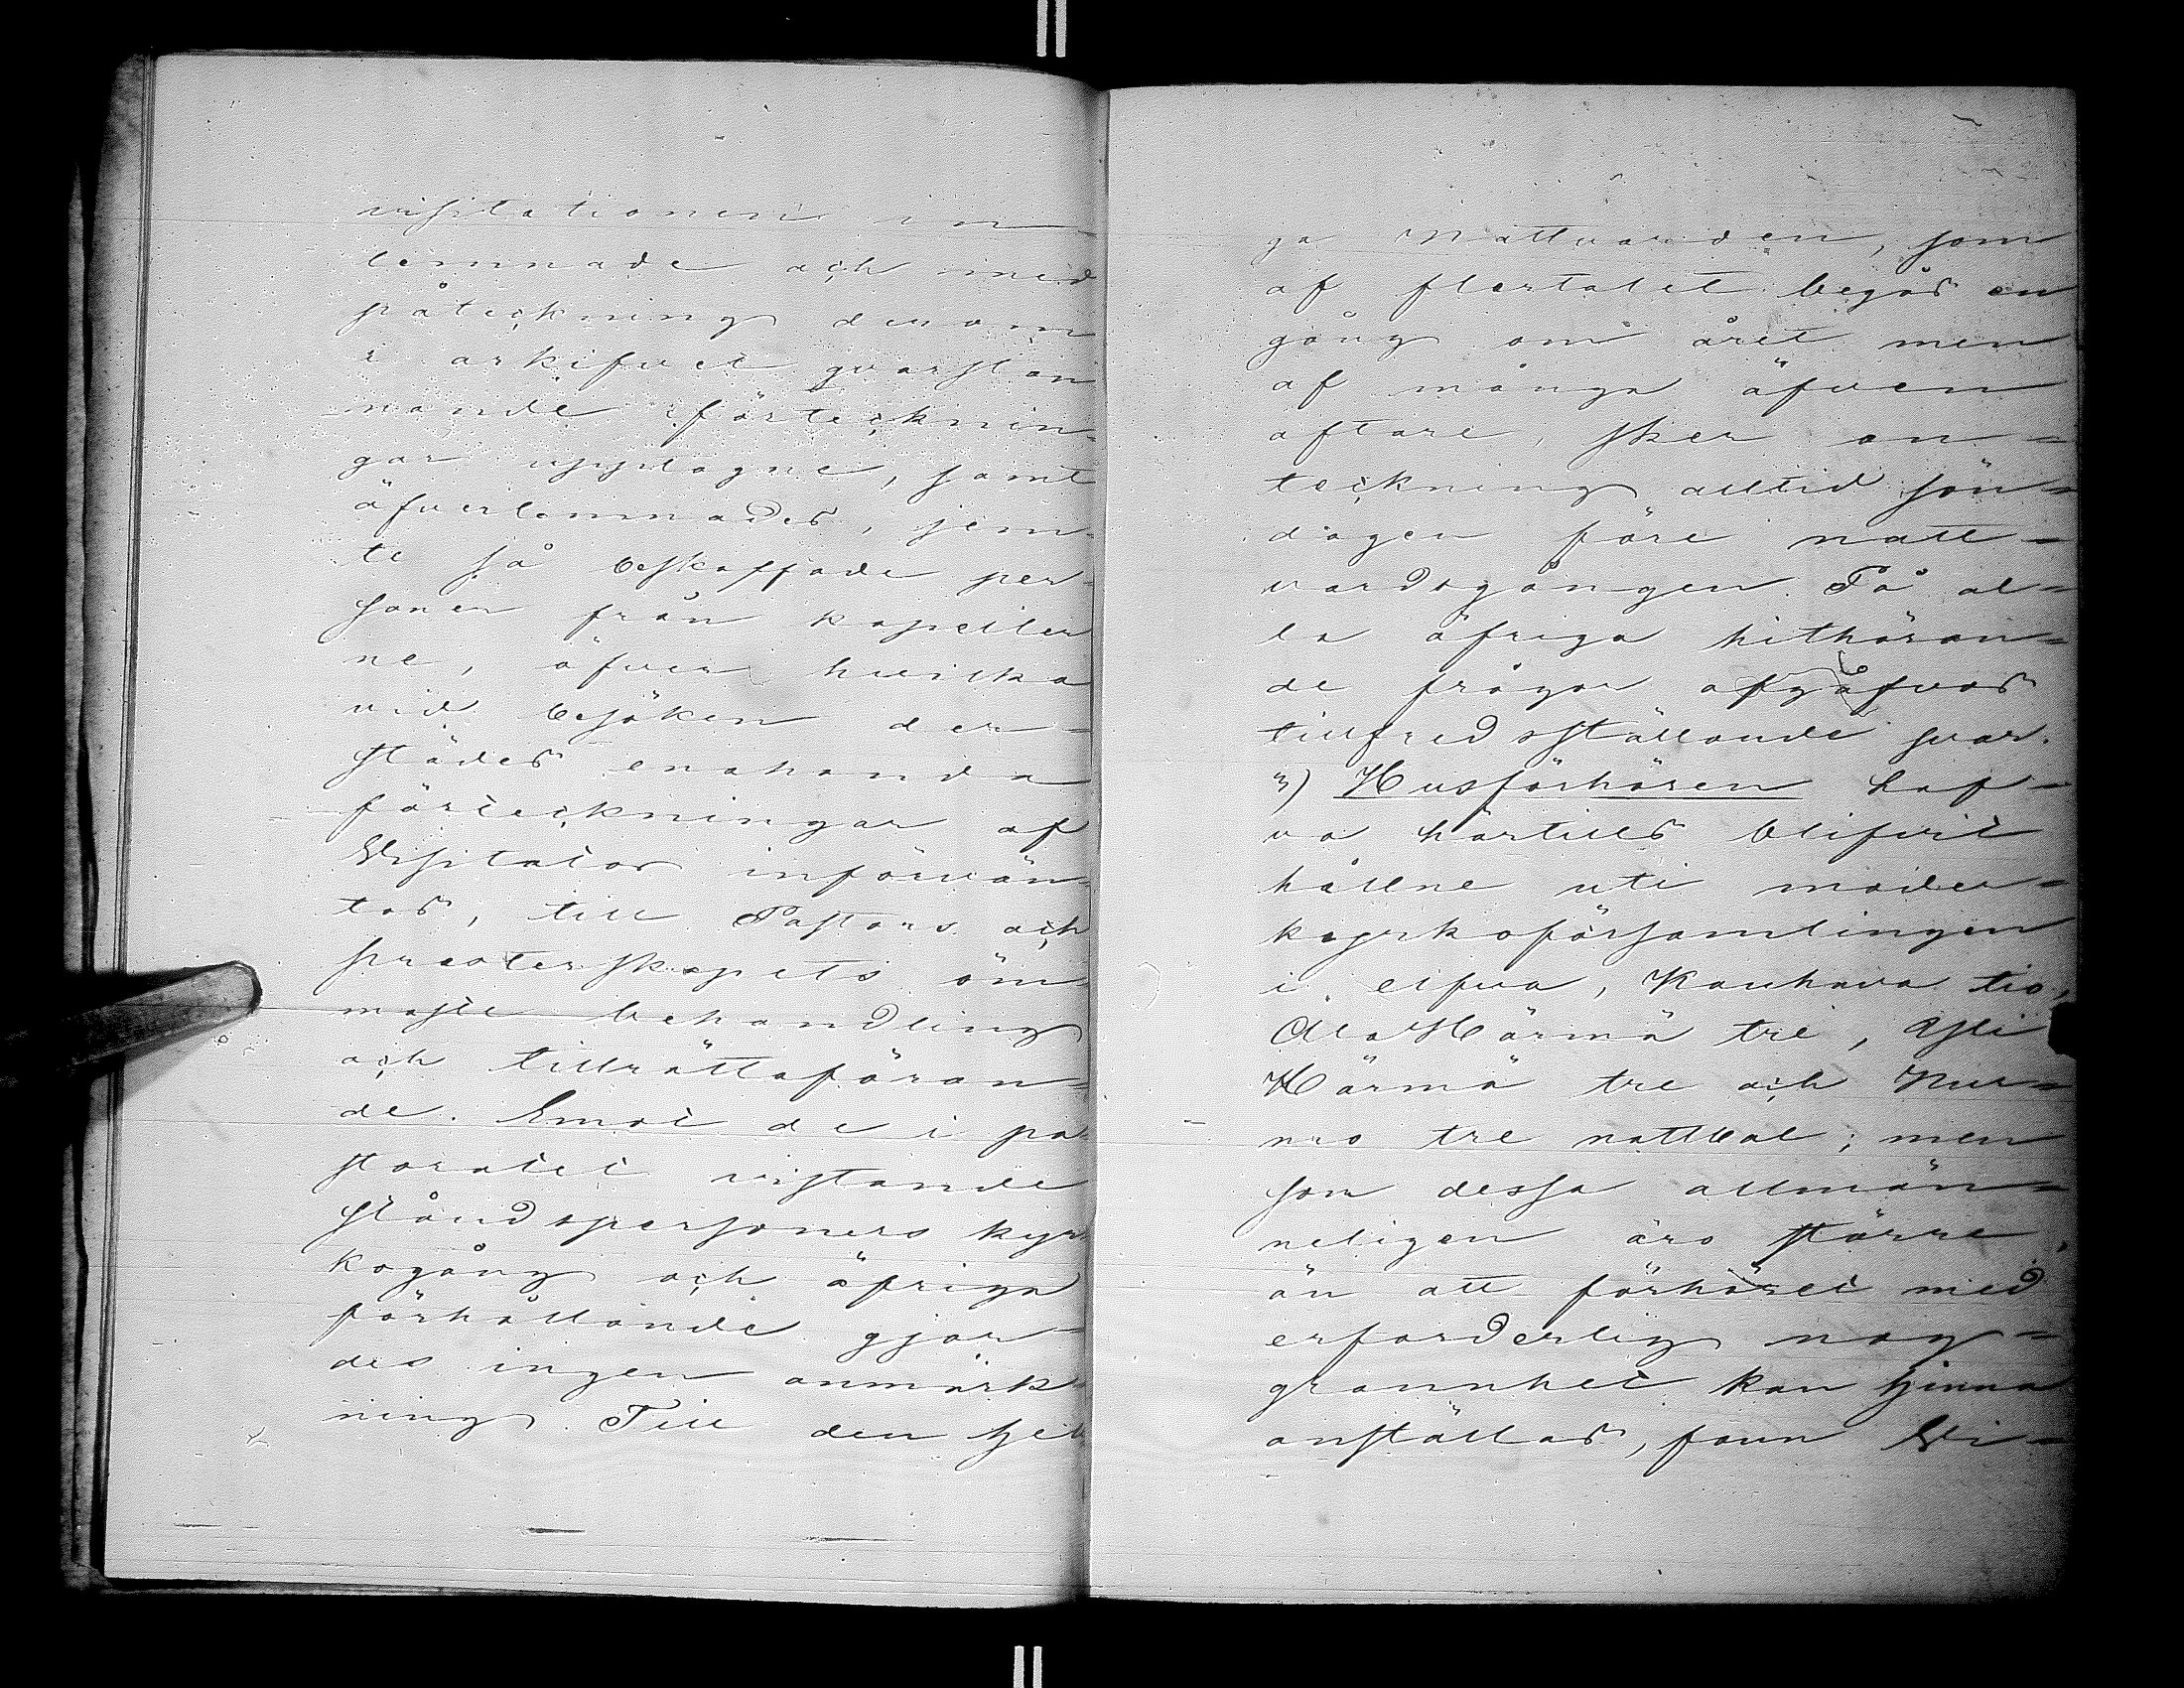 visitationen in-
lemnade och med
påteckning derom
i arkifvet qvarstan
nande förtecknin-
gar upptagne, samt
öfverlemnades, jem-
te så beskaffade per-
soner från kapeller
ne, öfver hvilka
vid besöken der-
städes enahanda
förteckningar af
Visitator införvän-
tas, till Pastors och
presterskapets öm-
maste behandling
och tillrättaföran-
de. Emot de i pa-
storatet vistande
ståndspersoners kyr-
kogång och öfriga
förhållande gjor-
des ingen anmärk-
ning. Till den heli-
ga Nattvarden, som
af flertalet begås en
gång om året men
af många äfven
oftare, sker an-
teckning alltid sön-
dagen före natt-
vardsgången. På al-
la öfriga hithöran-
de frågor afgåfvos
tillfredsställande svar.
3) Husförhören haf-
va härtills blifvit
hållne uti moder-
kyrkoförsamlingen
i elfva, Kauhava tio,
Ala Härmä tre, Yli
Härmä tre och Nur-
mo tre nattbol; men
som dessa allmän-
neligen äro större,
än att förhöret med
erforderlig nog-
grannhet kan hinna
anställas, fann Vi-